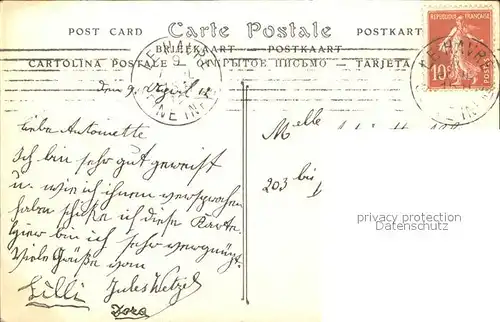 POST CARD Carte Postale POSTKART
BRIEFKAART — POSTKAART
CARTOLINA POSTALE ОТКРЫТОЕ ПИСЬМО — TARJETA
RÉPUBLIQUE FRANÇAISE
10 POSTES
LE HAVRE
den 9. April 12
Liebe Antoinette
Ich bin sehr gut gereist
u. wie ich ihnen versprochen
haben schicke ich diese Karte.
hier bin ich sehr vergnügt.
Viele Grüße von
Lilli Jules Wetzel
Dora
Melle
203 bis
privacy protection
Datenschutz